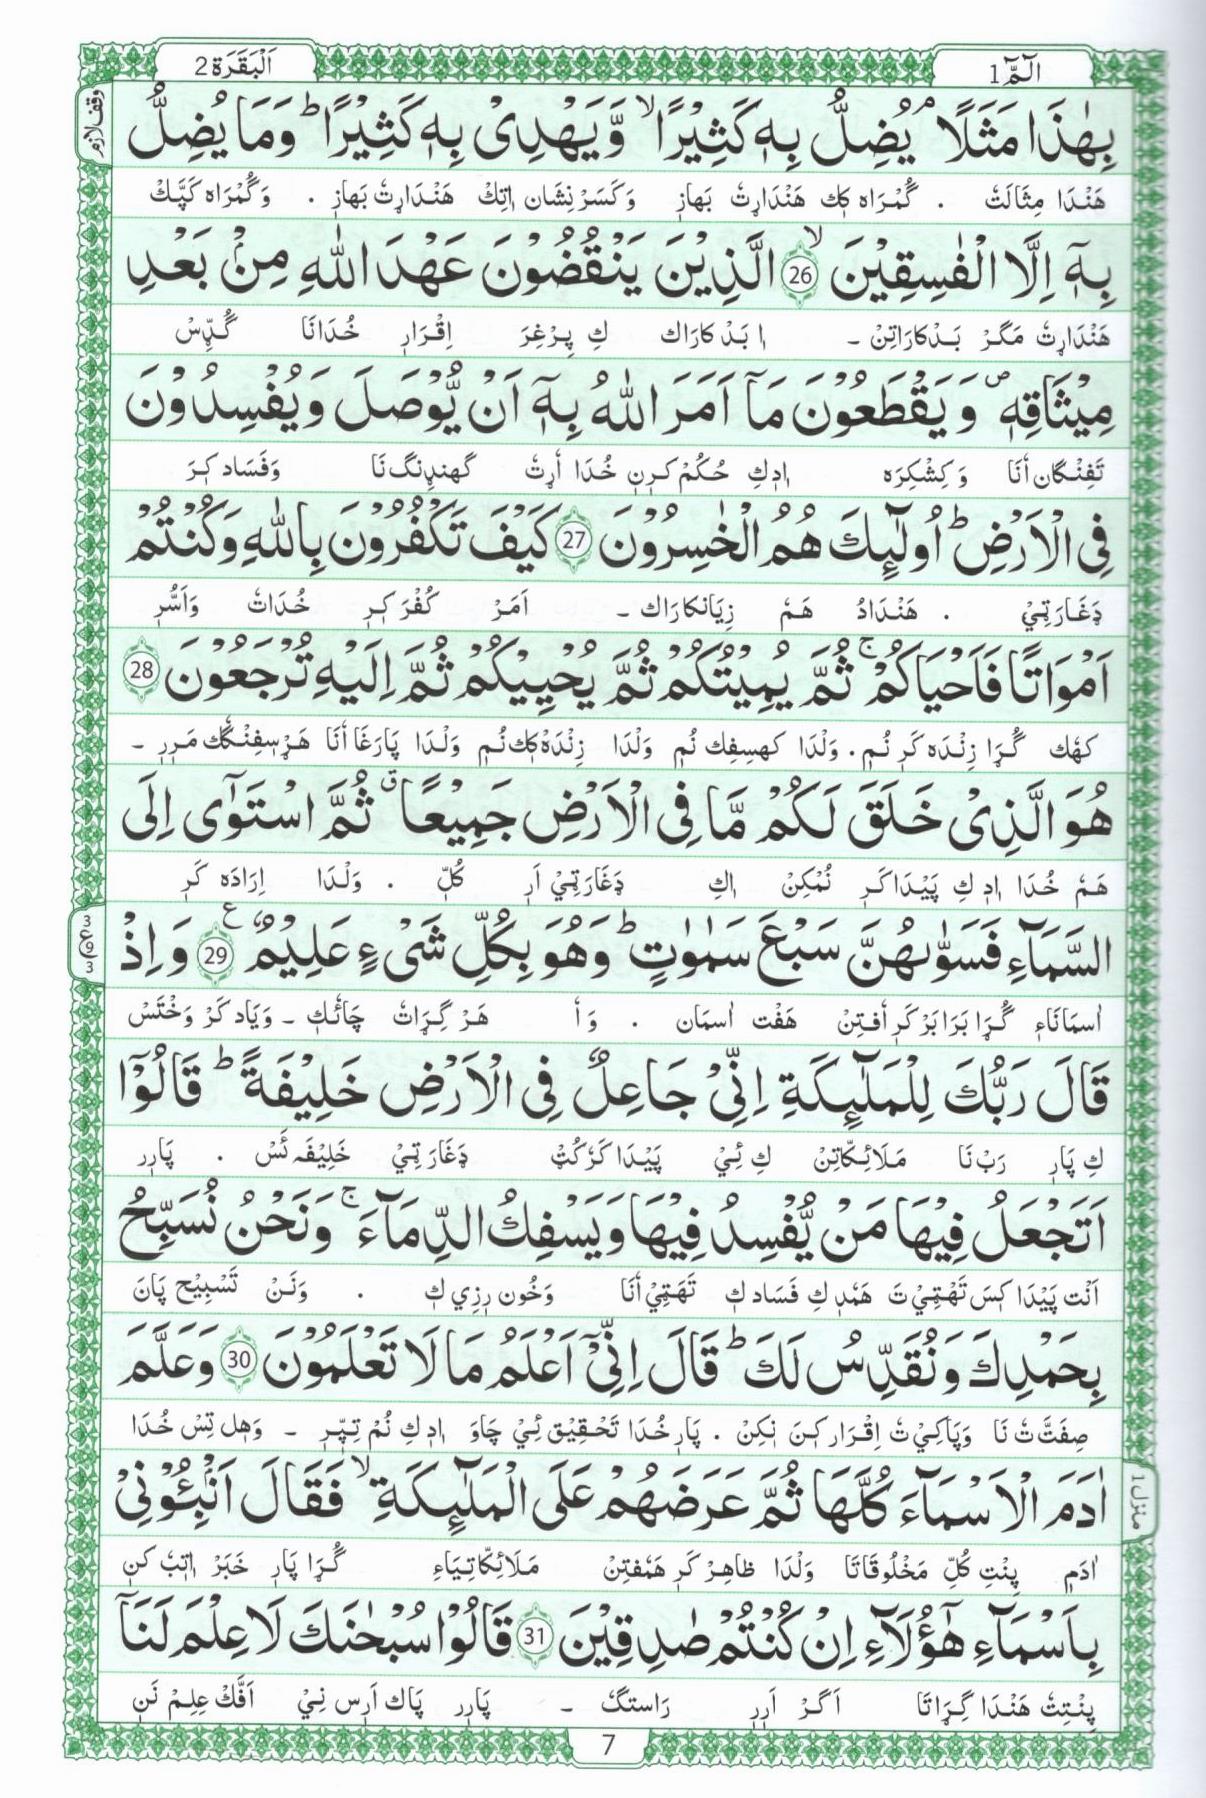 اَلْبَقَرَة 2
الٓمّٓ 1
وقف لازم
بِهٰذَا مَثَلًا ۘ يُضِلُّ بِهٖ كَثِيْرًا ۙ وَّيَهْدِىْ بِهٖ كَثِيْرًا ؕ وَمَا يُضِلُّ
هَنْدَا مِثَالَتْ . گُمْرَاه كِك هَنْدَارٹ بَهاز وَكَسَرْ نِشَان اِتِكْ هَنْدَارٹ بَهاز . وَگُمْرَاه كَپَّكْ
بِهٖۤ اِلَّا الْفٰسِقِيْنَ ۙ 26 الَّذِيْنَ يَنْقُضُوْنَ عَهْدَ اللّٰهِ مِنْۢ بَعْدِ
هَنْدَارٹ مَگَرْ بَدْكارَاتِنْ ۔ اِ بَدْكاراك كِ پِرْغِرَ اِقْرَار خُدَانَا گُڈِّسْ
مِيْثَاقِهٖ ۪ وَيَقْطَعُوْنَ مَاۤ اَمَرَ اللّٰهُ بِهٖۤ اَنْ يُّوْصَلَ وَيُفْسِدُوْنَ
تَفِنْگان اُنَا وَكِشْكِرَه اِدكِ حُكُمْ كرن خُدَا اُرٹ گهنڈنگ نَا وَفَسَاد كِرَ
فِى الْاَرْضِ ؕ اُولٰٓئِكَ هُمُ الْخٰسِرُوْنَ 27 كَيْفَ تَكْفُرُوْنَ بِاللّٰهِ وَكُنْتُمْ
ڈَغَارَ تِيْ . هَنْدَادُ هَمْ زِيَانكاراك ۔ اَمَرْ كُفْرَ كِر خُدَاتْ وَاَسُّرِ
اَمْوَاتًا فَاَحْيَاكُمْ ۚ ثُمَّ يُمِيْتُكُمْ ثُمَّ يُحْيِيْكُمْ ثُمَّ اِلَيْهِ تُرْجَعُوْنَ 28
كهُك گُڑَا زِنْدَه كَر نُم . وَلْدَا كهسِفِك نُم وَلْدَا زِنْدَه كِك نُم وَلْدَا پَارَغَا اُنَا هَرْسِفِنْگك مَرِر ۔
هُوَ الَّذِىْ خَلَقَ لَكُمْ مَّا فِى الْاَرْضِ جَمِيْعًا ۗ ثُمَّ اسْتَوٰٓى اِلَى
هَمْ خُدَا اِدكِ پَيْدَا كَر نُمْكِنْ اِكِ ڈَغَارَ تِيْ اَر كُلّ . وَلْدَا اِرَادَه كَر
السَّمَآءِ فَسَوّٰىهُنَّ سَبْعَ سَمٰوٰتٍ ؕ وَهُوَ بِكُلِّ شَىْءٍ عَلِيْمٌ ۠ 29 وَاِذْ
3 ع 3
اٰسمَانَاءِ گُڑَا بَرَابَرْ كَر اُفتِنْ هَفْت اٰسمَان . وَ اُ هَرْ گِرَاتْ چَائُك ۔ وَيَاد كَرْ وَخْتَسْ
قَالَ رَبُّكَ لِلْمَلٰٓئِكَةِ اِنِّىْ جَاعِلٌ فِى الْاَرْضِ خَلِيْفَةً ؕ قَالُوْۤا
كِ پَار رَبْ نَا مَلَائِكّاتِنْ كِ ئِيْ پَيْدَا كَرْكُٹ ڈَغَارَ تِيْ خَلِيْفَه ئَسْ . پَارر
اَتَجْعَلُ فِيْهَا مَنْ يُّفْسِدُ فِيْهَا وَيَسْفِكُ الدِّمَآءَ ۚ وَنَحْنُ نُسَبِّحُ
اَنْت پَيْدَا كِسَ تَهْتِيْ تَ هَمْدِ كِ فَسَاد كِ تَهْتِيْ اُنَا وَخُون رِزِي كِ . وَنَنْ تَسْبِيْح پَانَ
بِحَمْدِكَ وَنُقَدِّسُ لَكَ ؕ قَالَ اِنِّىْۤ اَعْلَمُ مَا لَا تَعْلَمُوْنَ 30 وَعَلَّمَ
صِفَتَّتْ نَا وَپَاكِيْ تْ اِقْرَار كِنَ نِكِنْ . پَار خُدَا تَحْقِيْق ئِيْ چَاوَ اِدكِ نُمْ تِپّر ۔ وَهِل تِسْ خُدَا
اٰدَمَ الْاَسْمَآءَ كُلَّهَا ثُمَّ عَرَضَهُمْ عَلَى الْمَلٰٓئِكَةِ ۙ فَقَالَ اَنْۢبِئُوْنِىْ
منزل ۱
اٰدَم پِنْتِ كُلِّ مَخْلُوقَاتَا وَلْدَا ظَاهِرْ كَر هَمْفتِنْ مَلَائِكّاتِيَاءِ گُڑَا پَار خَبَرْ اِتِبْ كَنِ
بِاَسْمَآءِ هٰٓؤُلَآءِ اِنْ كُنْتُمْ صٰدِقِيْنَ 31 قَالُوْا سُبْحٰنَكَ لَا عِلْمَ لَنَاۤ
پِنْتِتْ هَنْدَا گِرَاتَا اَگَرْ اَرِر رَاستگ ۔ پَارر پَاك اَرس نِيْ اَفَّكْ عِلِمْ نَن
7